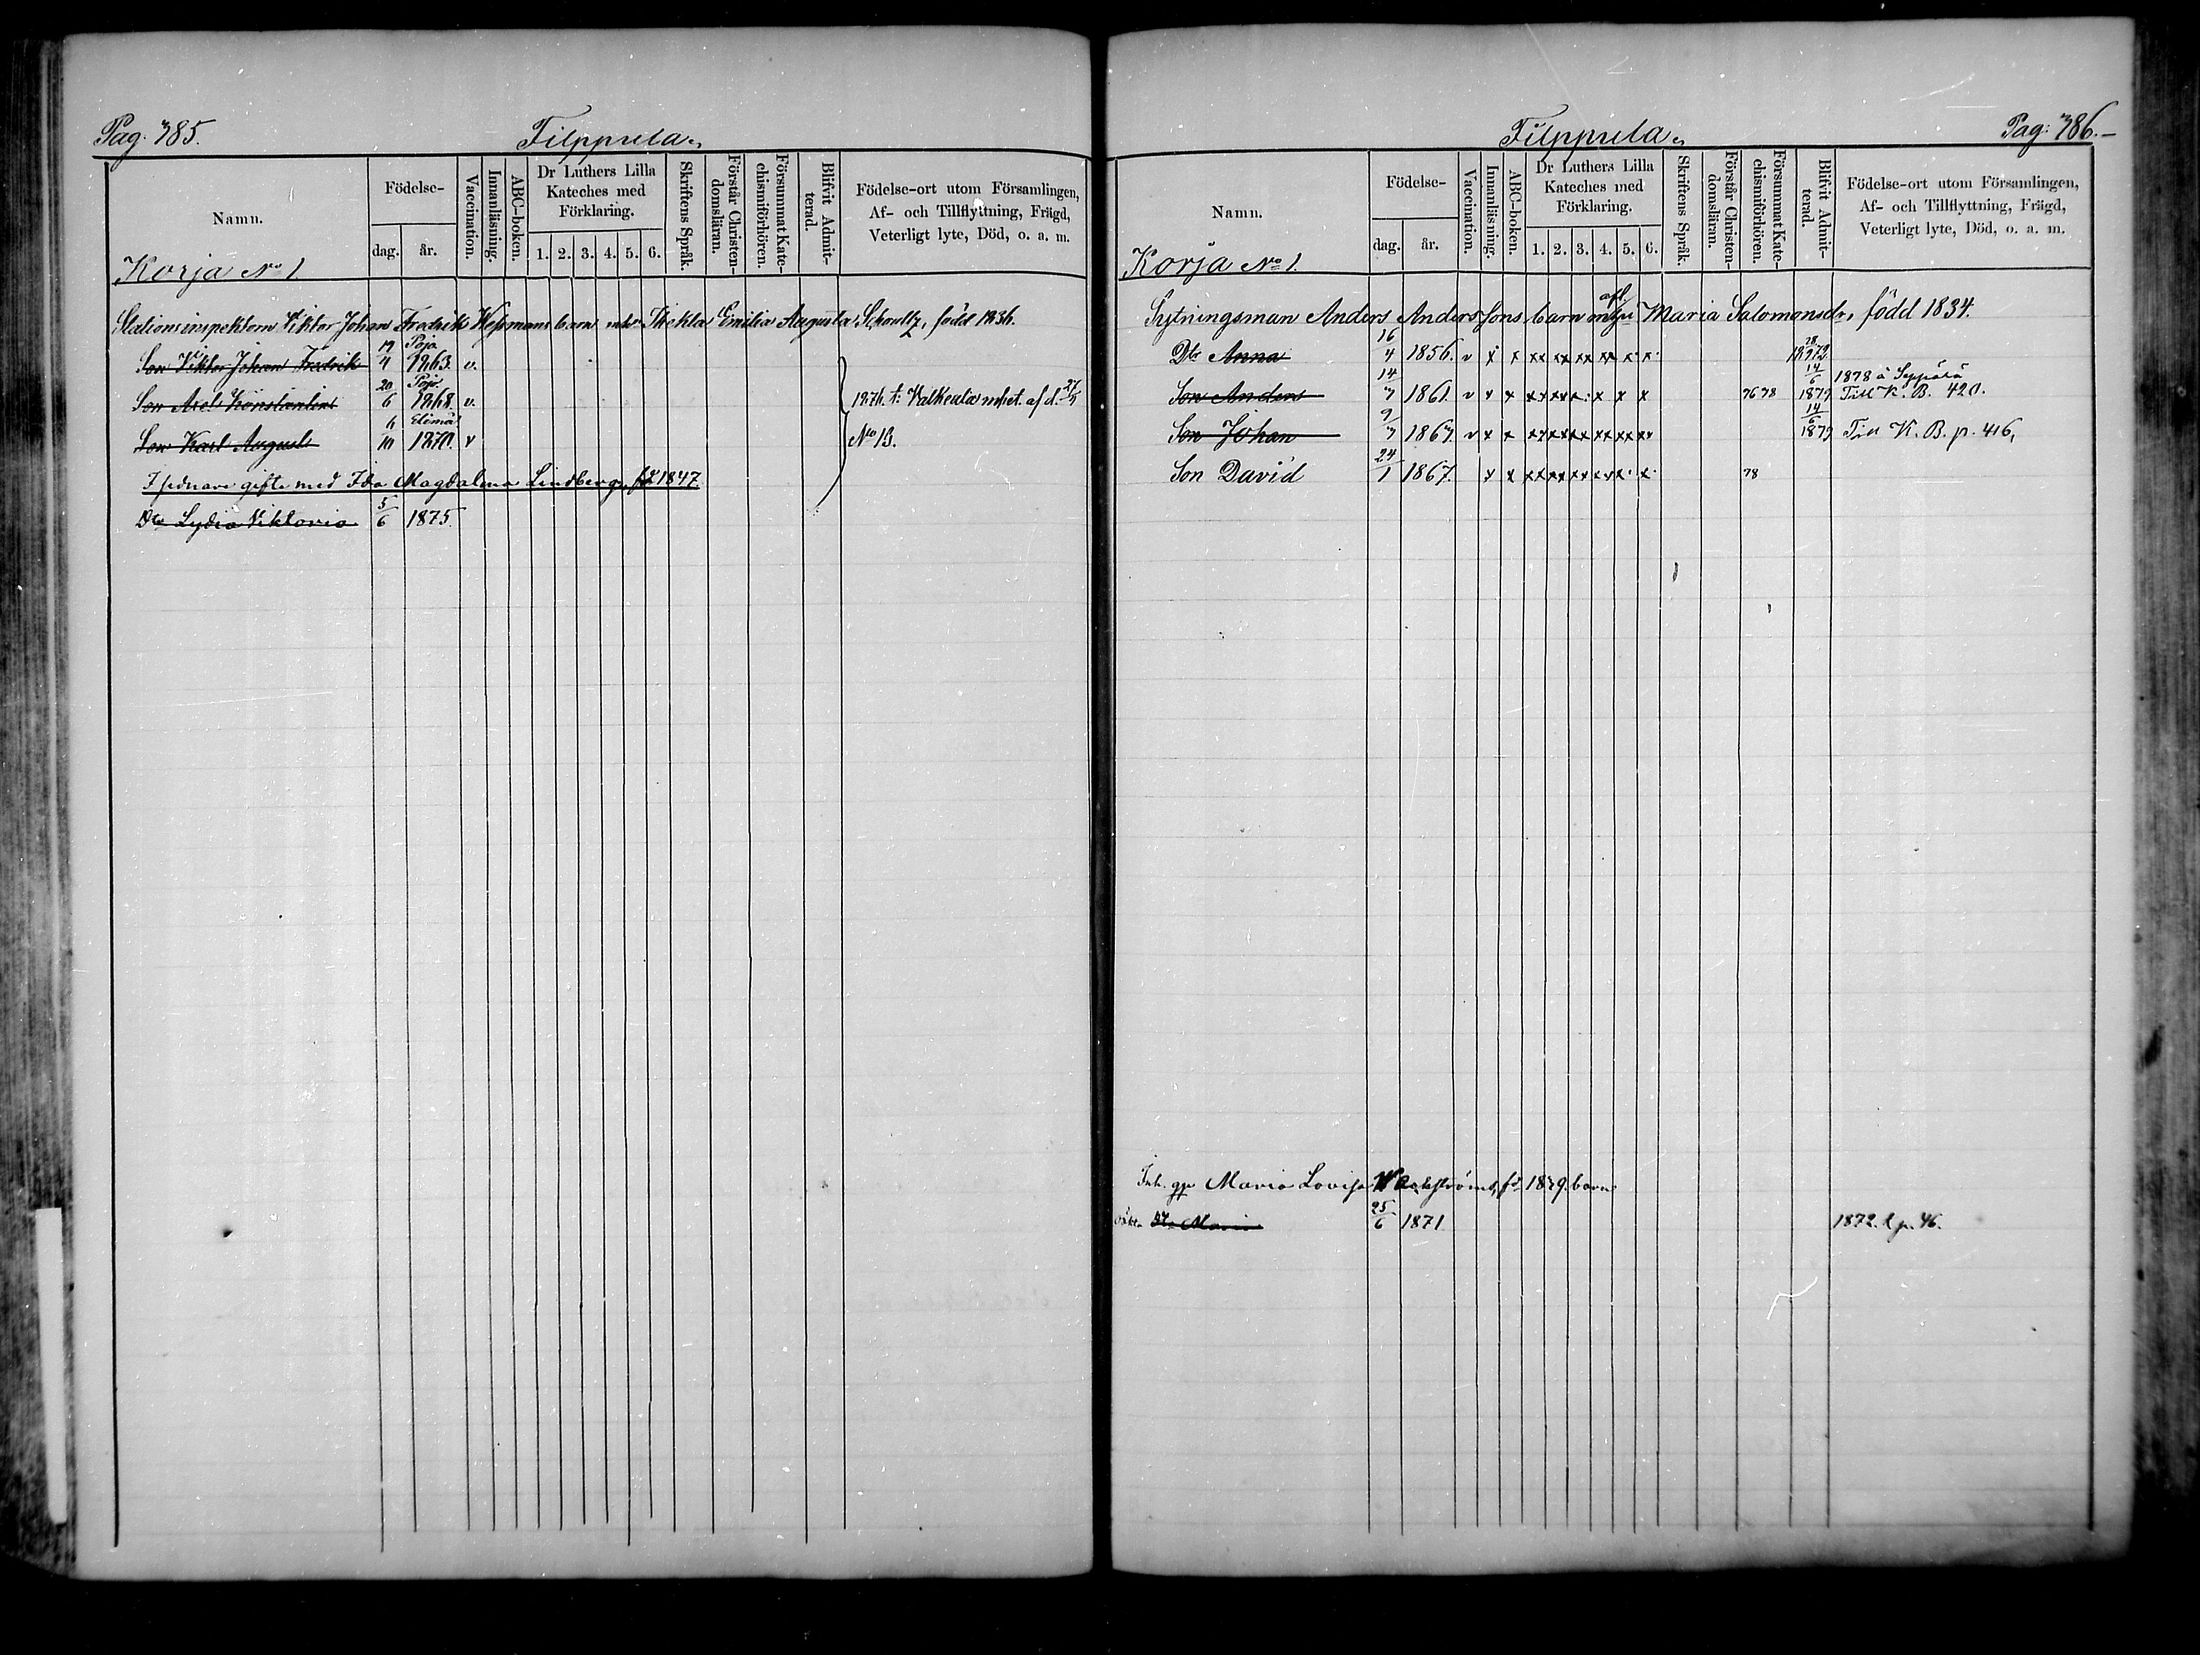 Pag. 385.
Filppula
Namn.
Födelse-
dag.
år.
Vaccination.
Innanläsning.
ABC-boken.
Dr Luthers Lilla
Kateches med
Förklaring.
1. 2. 3. 4. 5. 6.
Skriftens Språk.
Förstår Christen-
domsläran.
Försummat Kate-
chismiförhören.
Blifvit Admit-
terad.
Födelse-ort utom Församlingen,
Af- och Tillflyttning, Frägd,
Veterligt lyte, Död, o. a. m.
Korja No 1
Stationsinspektorn Viktor Johan Fredrik barn Emilia Augusta född 1836.
Son Viktor Johan Fredrik 19/4 Pojo 1863. v.
Son Axel Konstantin 20/6 Pojo 1868. v.
Son Karl August 6/10 Elimä 1870. v
1876. t: Valkeala af d. 27/5
No 13.
I senare gifte med Ida Magdalena Lindberg, fd 1847
Dtr Lydia Viktoria 5/6 1875.
Pag: 386.
Filppula
Namn.
Födelse-
dag.
år.
Vaccination.
Innanläsning.
ABC-boken.
Dr Luthers Lilla
Kateches med
Förklaring.
1. 2. 3. 4. 5. 6.
Skriftens Språk.
Förstår Christen-
domsläran.
Försummat Kate-
chismiförhören.
Blifvit Admit-
terad.
Födelse-ort utom Församlingen,
Af- och Tillflyttning, Frägd,
Veterligt lyte, Död, o. a. m.
Korja No 1.
Sytningsman Anders Andersons barn Maria Salomonsdr, född 1834.
Dtr Anna 16/4 1856. v x x xx xx xx x x
Son Anders 14/7 1861. v x x xx xx x x x 76 78 14/6 1879 1878 å Seppälä
Till K. B. 420.
Son Johan 9/7 1867 v x x xx xx xx xx xx 14/6 1879 Till K. B. p. 416,
Son David 24/1 1867. x x xx xx xx x x 78
Inh. Maria Lovisa barn
Dtr Maria 25/6 1871. 1872. p. 46.